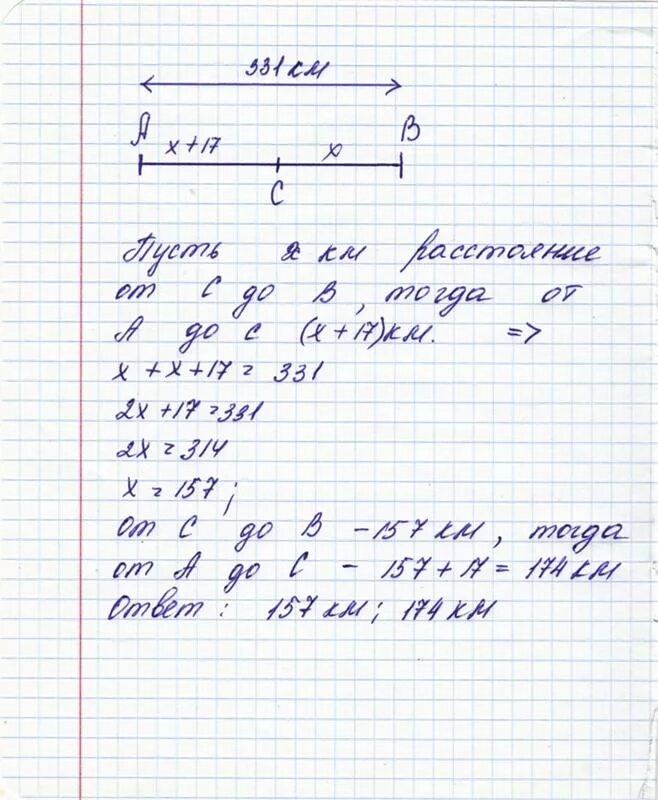 331 км
А
В
x + 17
x
С
Пусть x км расстояние
от С до В, тогда от
А до С (x + 17) км. =>
x + x + 17 = 331
2x + 17 = 331
2x = 314
x = 157 ;
от С до В - 157 км, тогда
от А до С - 157 + 17 = 174 км
Ответ : 157 км ; 174 км